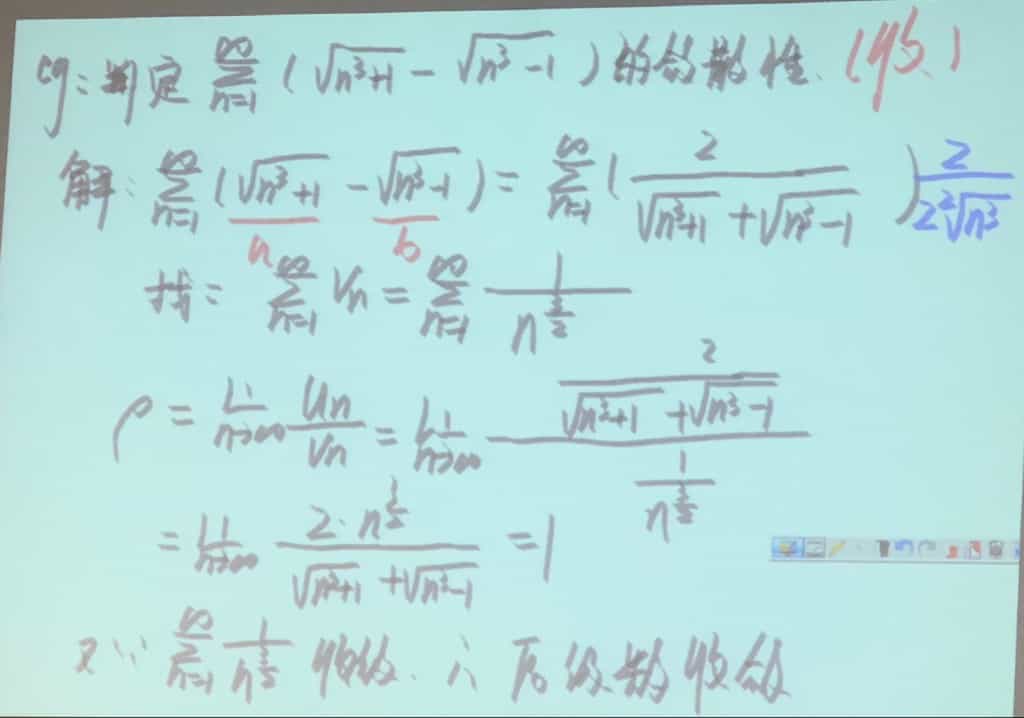 eg: 判定 ∑_{n=1}^{∞} (√(n³+1) - √(n³-1)) 的敛散性. (收.)
解: ∑_{n=1}^{∞} (√(n³+1) - √(n³-1)) = ∑_{n=1}^{∞} ( 2 / (√(n³+1) + √(n³-1)) ) 2 / (2 ²√n³)
a b
找: ∑_{n=1}^{∞} Vn = ∑_{n=1}^{∞} 1 / n^{3/2}
ρ = lim_{n→∞} Un / Vn = lim_{n→∞} (2 / (√(n³+1) + √(n³-1))) / (1 / n^{3/2})
= lim_{n→∞} 2·n^{3/2} / (√(n³+1) + √(n³-1)) = 1
又∵ ∑_{n=1}^{∞} 1 / n^{3/2} 收敛. ∴ 原级数收敛